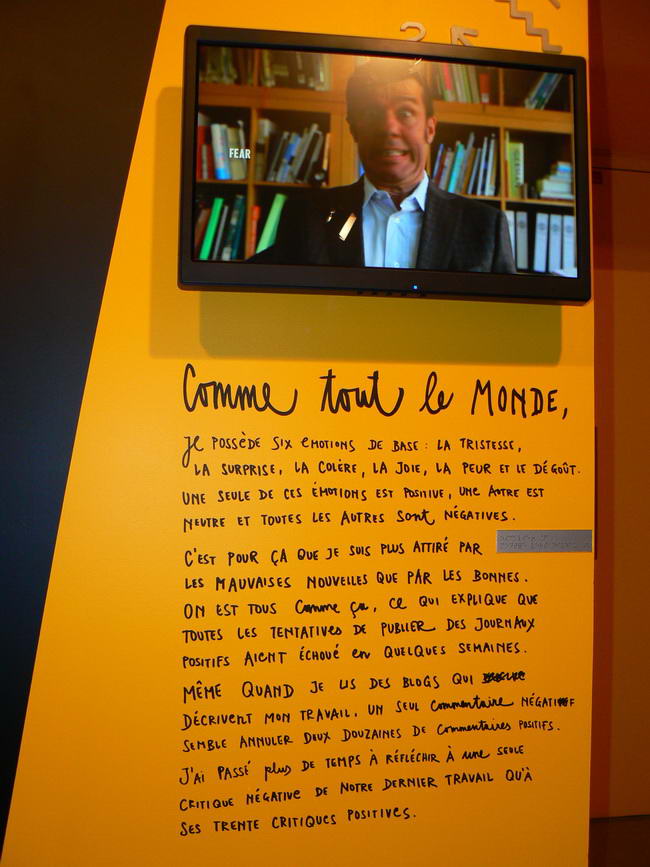 ?
FEAR
Comme tout le MONDE,
Je POSSÈDE SIX ÉMOTIONS DE BASE : LA TRISTESSE,
LA SURPRISE, LA COLÈRE, LA JOIE, LA PEUR ET LE DÉGOÛT.
UNE SEULE DE CES ÉMOTIONS EST POSITIVE, UNE AUTRE EST
NEUTRE ET TOUTES LES AUTRES SONT NÉGATIVES.
C'EST POUR ÇA QUE JE SUIS PLUS ATTIRÉ PAR
LES MAUVAISES NOUVELLES QUE PAR LES BONNES.
ON EST TOUS Comme ça, CE QUI EXPLIQUE QUE
TOUTES LES TENTATIVES DE PUBLIER DES JOURNAUX
POSITIFS AIENT ÉCHOUÉ en QUELQUES SEMAINES.
MÊME QUAND JE LIS DES BLOGS QUI
DÉCRIVENT MON TRAVAIL, UN SEUL commentaire NÉGATIF
SEMBLE ANNULER DEUX DOUZAINES DE commentaires POSITIFS.
J'AI PASSÉ plus DE TEMPS À RÉFLÉCHIR À une SEULE
CRITIQUE NÉGATIVE DE NOTRE DERNIER TRAVAIL QU'À
SES TRENTE CRITIQUES POSITIVES.